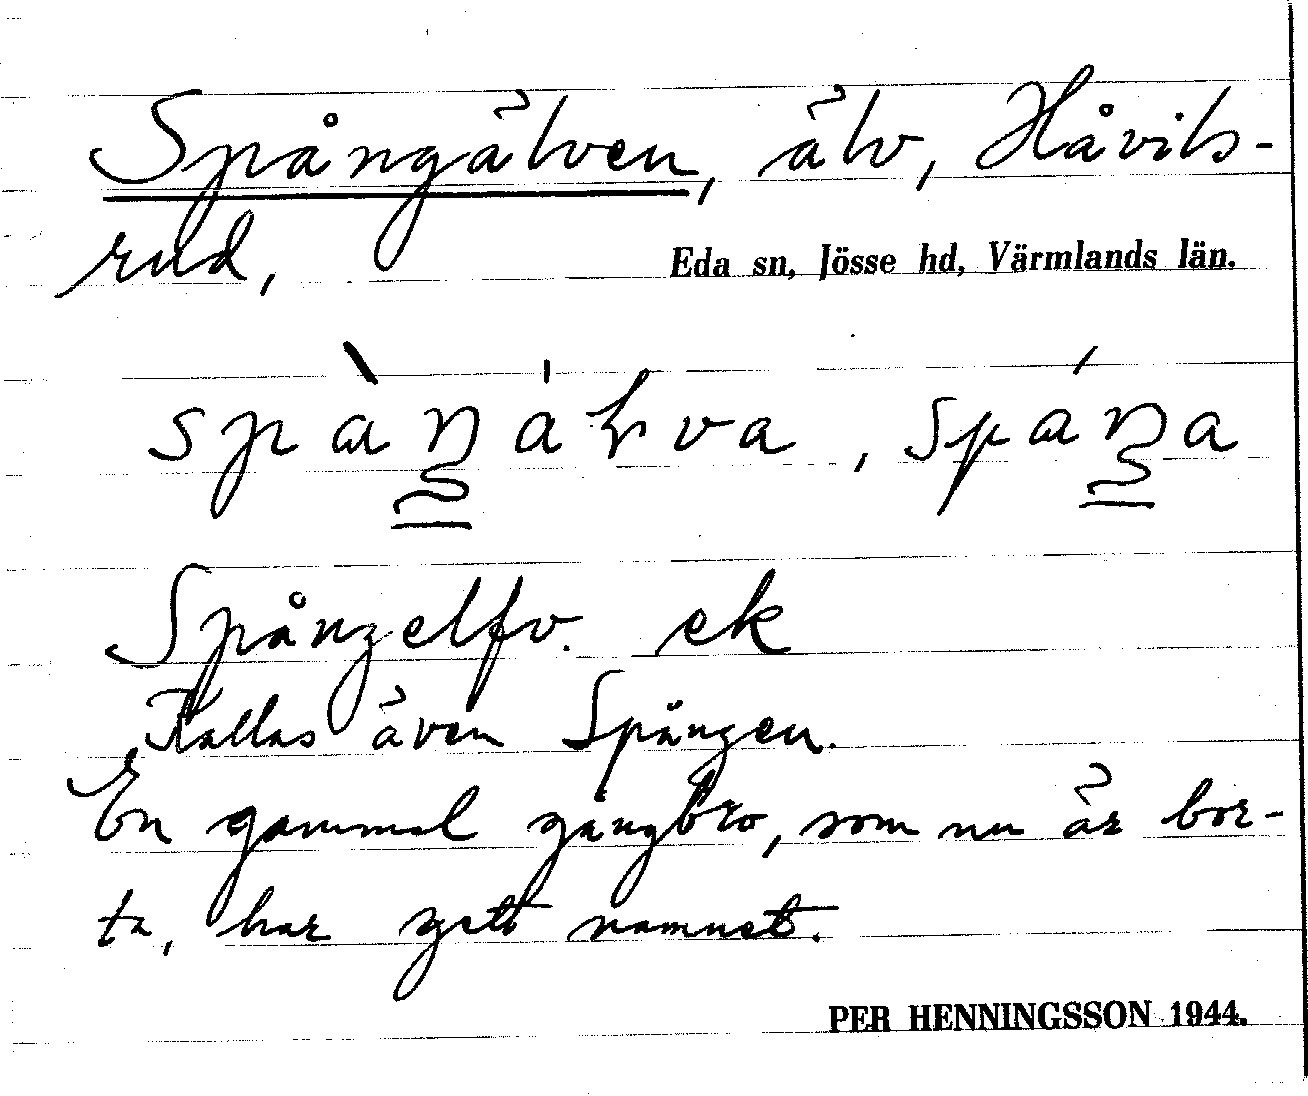 Spångälven, älv, Håvils-
rud,
Eda sn, Jösse hd, Värmlands län.
Spångelfv. ek
Kallas även Spången.
En gammal gångbro, som nu är bor-
ta, har gett namnet.
PER HENNINGSSON 1944.